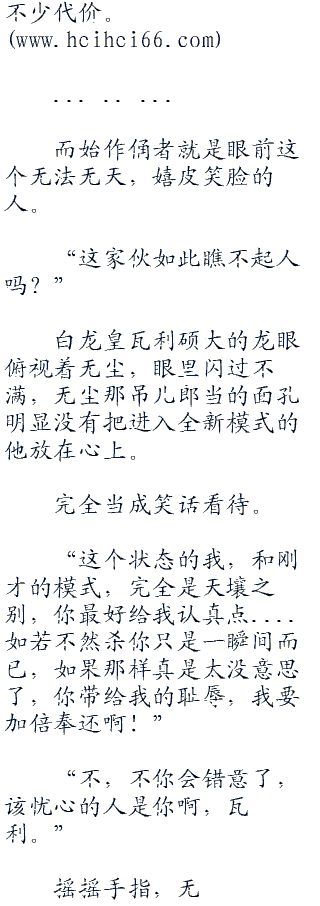 不少代价。
(www.hcihci66.com)
... .. ...
而始作俑者就是眼前这
个无法无天，嬉皮笑脸的
人。
“这家伙如此瞧不起人
吗？”
白龙皇瓦利硕大的龙眼
俯视着无尘，眼里闪过不
满，无尘那吊儿郎当的面孔
明显没有把进入全新模式的
他放在心上。
完全当成笑话看待。
“这个状态的我，和刚
才的模式，完全是天壤之
别，你最好给我认真点....
如若不然杀你只是一瞬间而
已，如果那样真是太没意思
了，你带给我的耻辱，我要
加倍奉还啊！”
“不，不你会错意了，
该忧心的人是你啊，瓦
利。”
摇摇手指，无